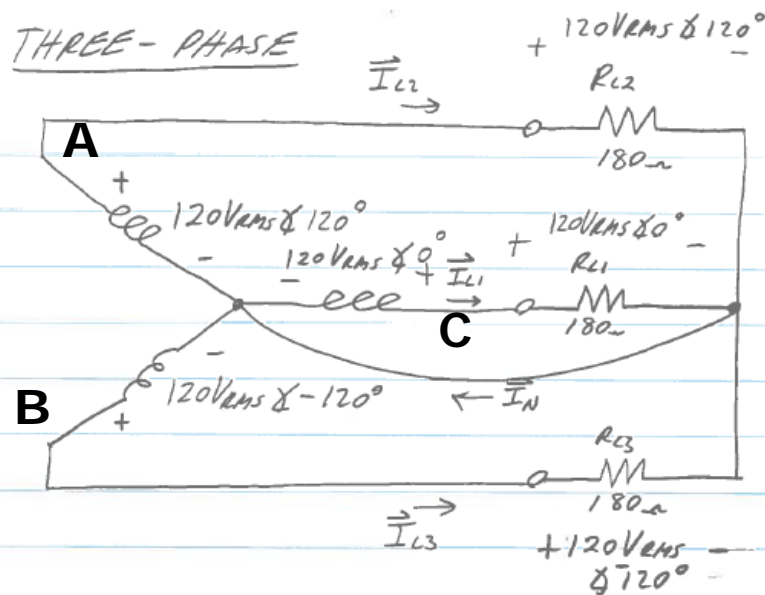 THREE-PHASE
+ 120VRMS ∡120° -
I⃗L2 →
RL2
A
180Ω
+
120VRMS∡120°
-
120VRMS∡0°
+ 120VRMS∡0° -
- + I⃗L1 →
RL1
C
180Ω
-
B
120VRMS∡-120°
+
← I⃗N
RL3
180Ω
I⃗L3 →
+120VRMS -
∡-120°